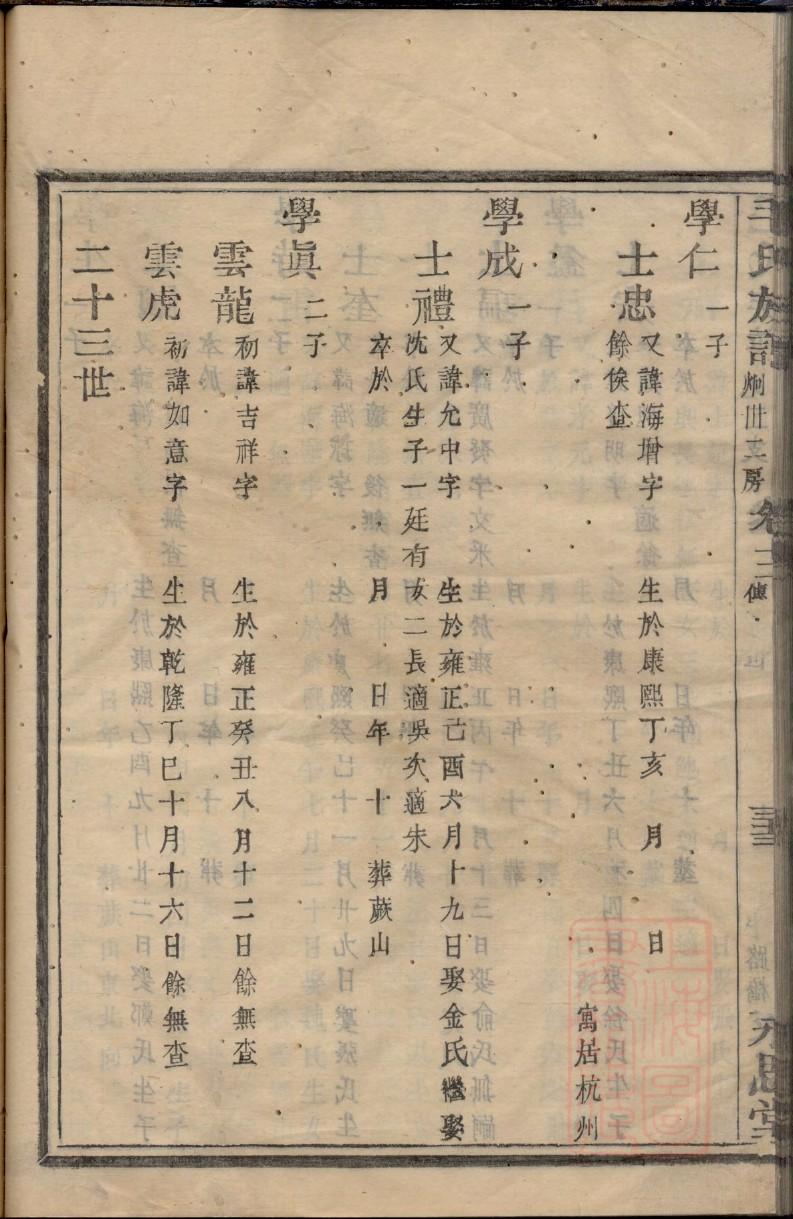 毛氏族譜 卷三
永思堂
學仁 一子
士忠 又諱海增字 生於康熙丁亥 月 日
餘俟查 寓居杭州
學成 一子
士禮 又諱允中字 生於雍正己酉六月十九日娶金氏繼娶
沈氏生子一廷有女二長適吳次適朱
卒於 月 日年 十 葬蕨山
學眞 二子
雲龍 初諱吉祥字 生於雍正癸丑八月十二日餘無查
雲虎 初諱如意字 生於乾隆丁巳十月十六日餘無查
二十三世